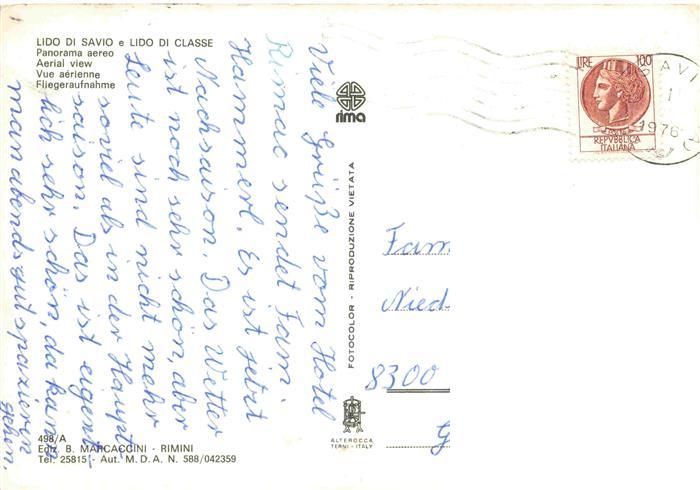 LIDO DI SAVIO e LIDO DI CLASSE
Panorama aereo
Aerial view
Vue aérienne
Fliegeraufnahme
Viele Grüße vom Hotel
Rimac sendet Fam.
Hammerl. Es ist jetzt
Nachsaison. Das Wetter
ist noch sehr schön, aber
Leute sind nicht mehr
soviel als in der Haupt-
saison. Das ist eigent-
lich sehr schön, da kann
man abends gut spazieren
gehen.
498/A
Ediz. B. MARCACCINI - RIMINI
Tel. 25815 - Aut. M.D.A.N. 588/042359
rima
FOTOCOLOR - RIPRODUZIONE VIETATA
ALTEROCCA
TERNI - ITALY
LIRE 100
REPVBBLICA
ITALIANA
SAVI
1976
Fam
Nied
8300